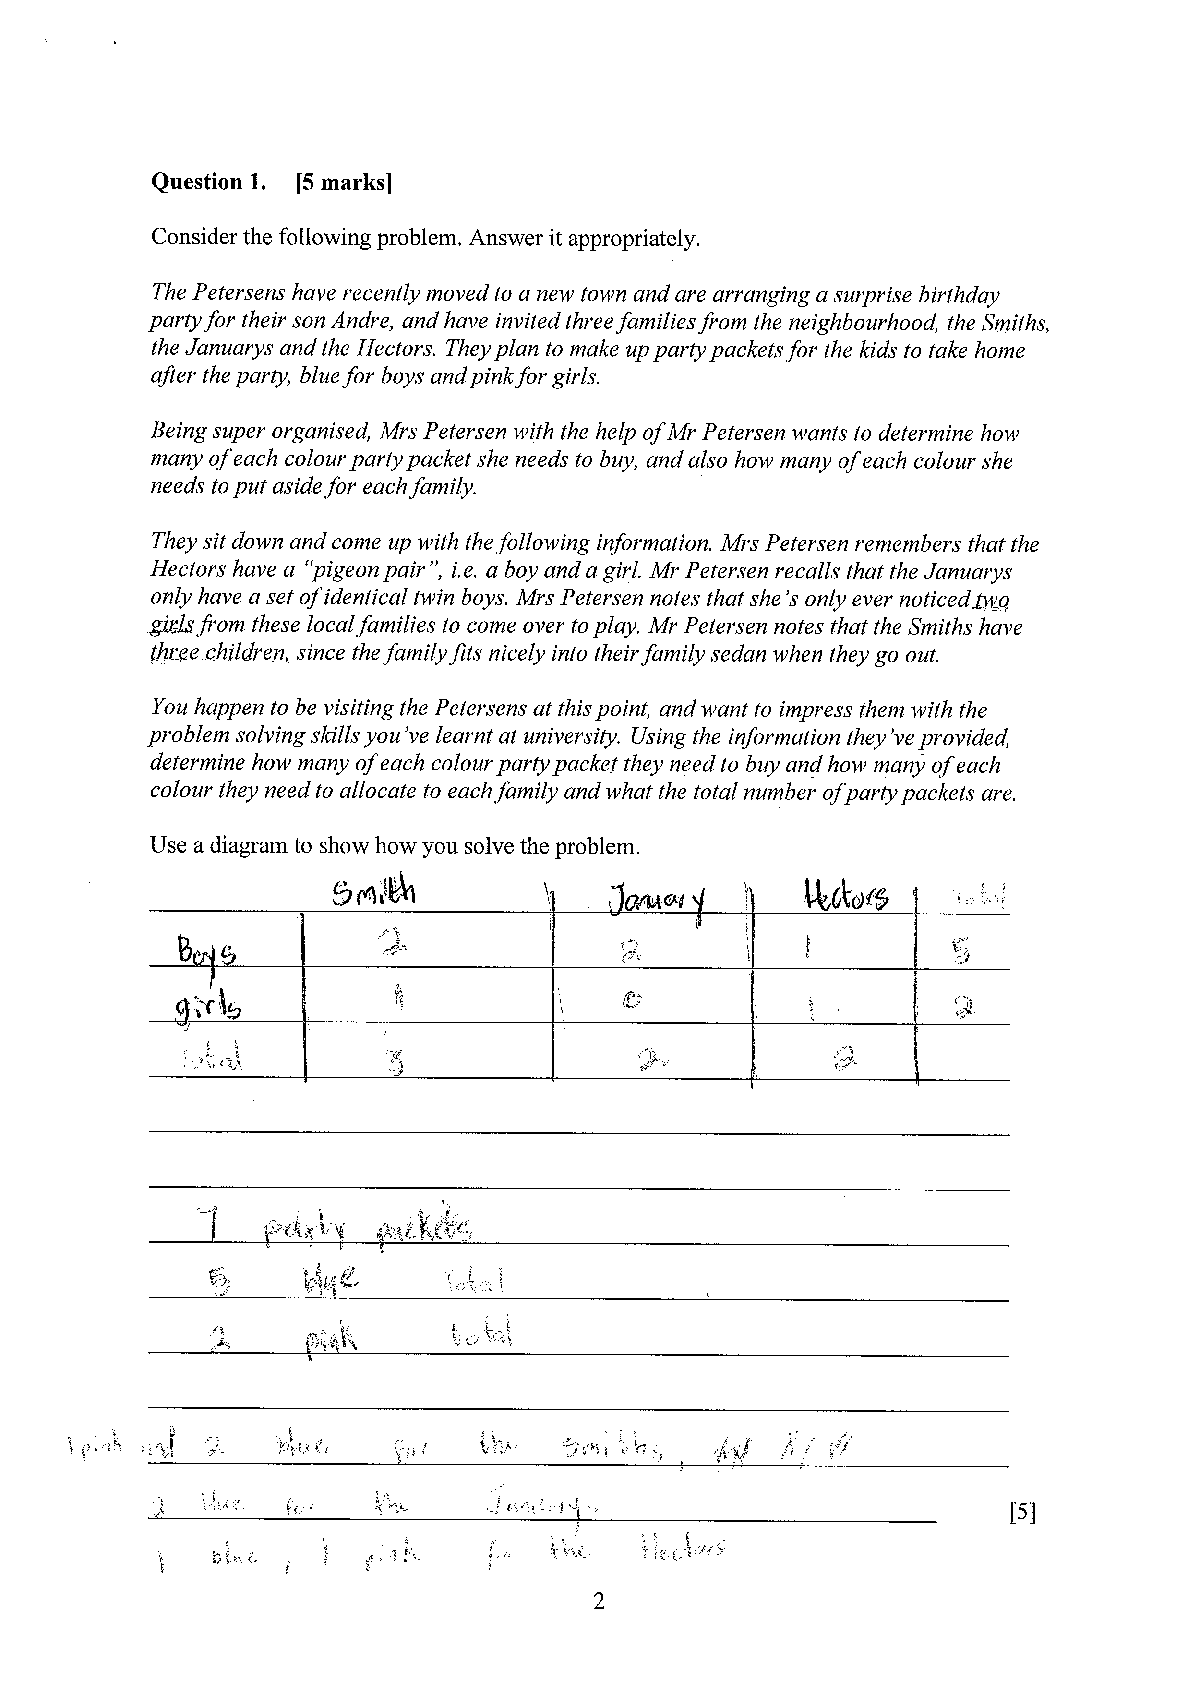 Question 1. [5 marks]
Consider the following problem. Answer it appropriately.
The Petersens have recently moved to a new town and are arranging a surprise birthday
party for their son Andre, and have invited three families from the neighbourhood, the Smiths,
the Januarys and the Hectors. They plan to make up party packets for the kids to take home
after the party, blue for boys and pink for girls.
Being super organised, Mrs Petersen with the help of Mr Petersen wants to determine how
many of each colour party packet she needs to buy, and also how many of each colour she
needs to put aside for each family.
They sit down and come up with the following information. Mrs Petersen remembers that the
Hectors have a "pigeon pair", i.e. a boy and a girl. Mr Petersen recalls that the Januarys
only have a set of identical twin boys. Mrs Petersen notes that she's only ever noticed two
girls from these local families to come over to play. Mr Petersen notes that the Smiths have
three children, since the family fits nicely into their family sedan when they go out.
You happen to be visiting the Petersens at this point, and want to impress them with the
problem solving skills you've learnt at university. Using the information they've provided,
determine how many of each colour party packet they need to buy and how many of each
colour they need to allocate to each family and what the total number of party packets are.
Use a diagram to show how you solve the problem.
Smith January Hectors Total
Boys 2 2 1 5
girls 1 0 1 2
Total 3 2 2
7 party packets
5 blue total
2 pink total
1 pink and 2 blue for the Smiths,
2 blue for the Januarys
1 blue, 1 pink for the Hectors
[5]
2